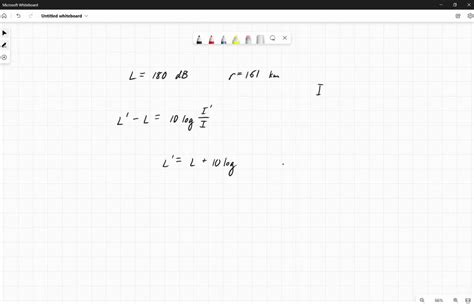 Microsoft Whiteboard
Untitled whiteboard
L = 180 dB r = 161 km
I
L' - L = 10 log I'/I
L' = L + 10 log